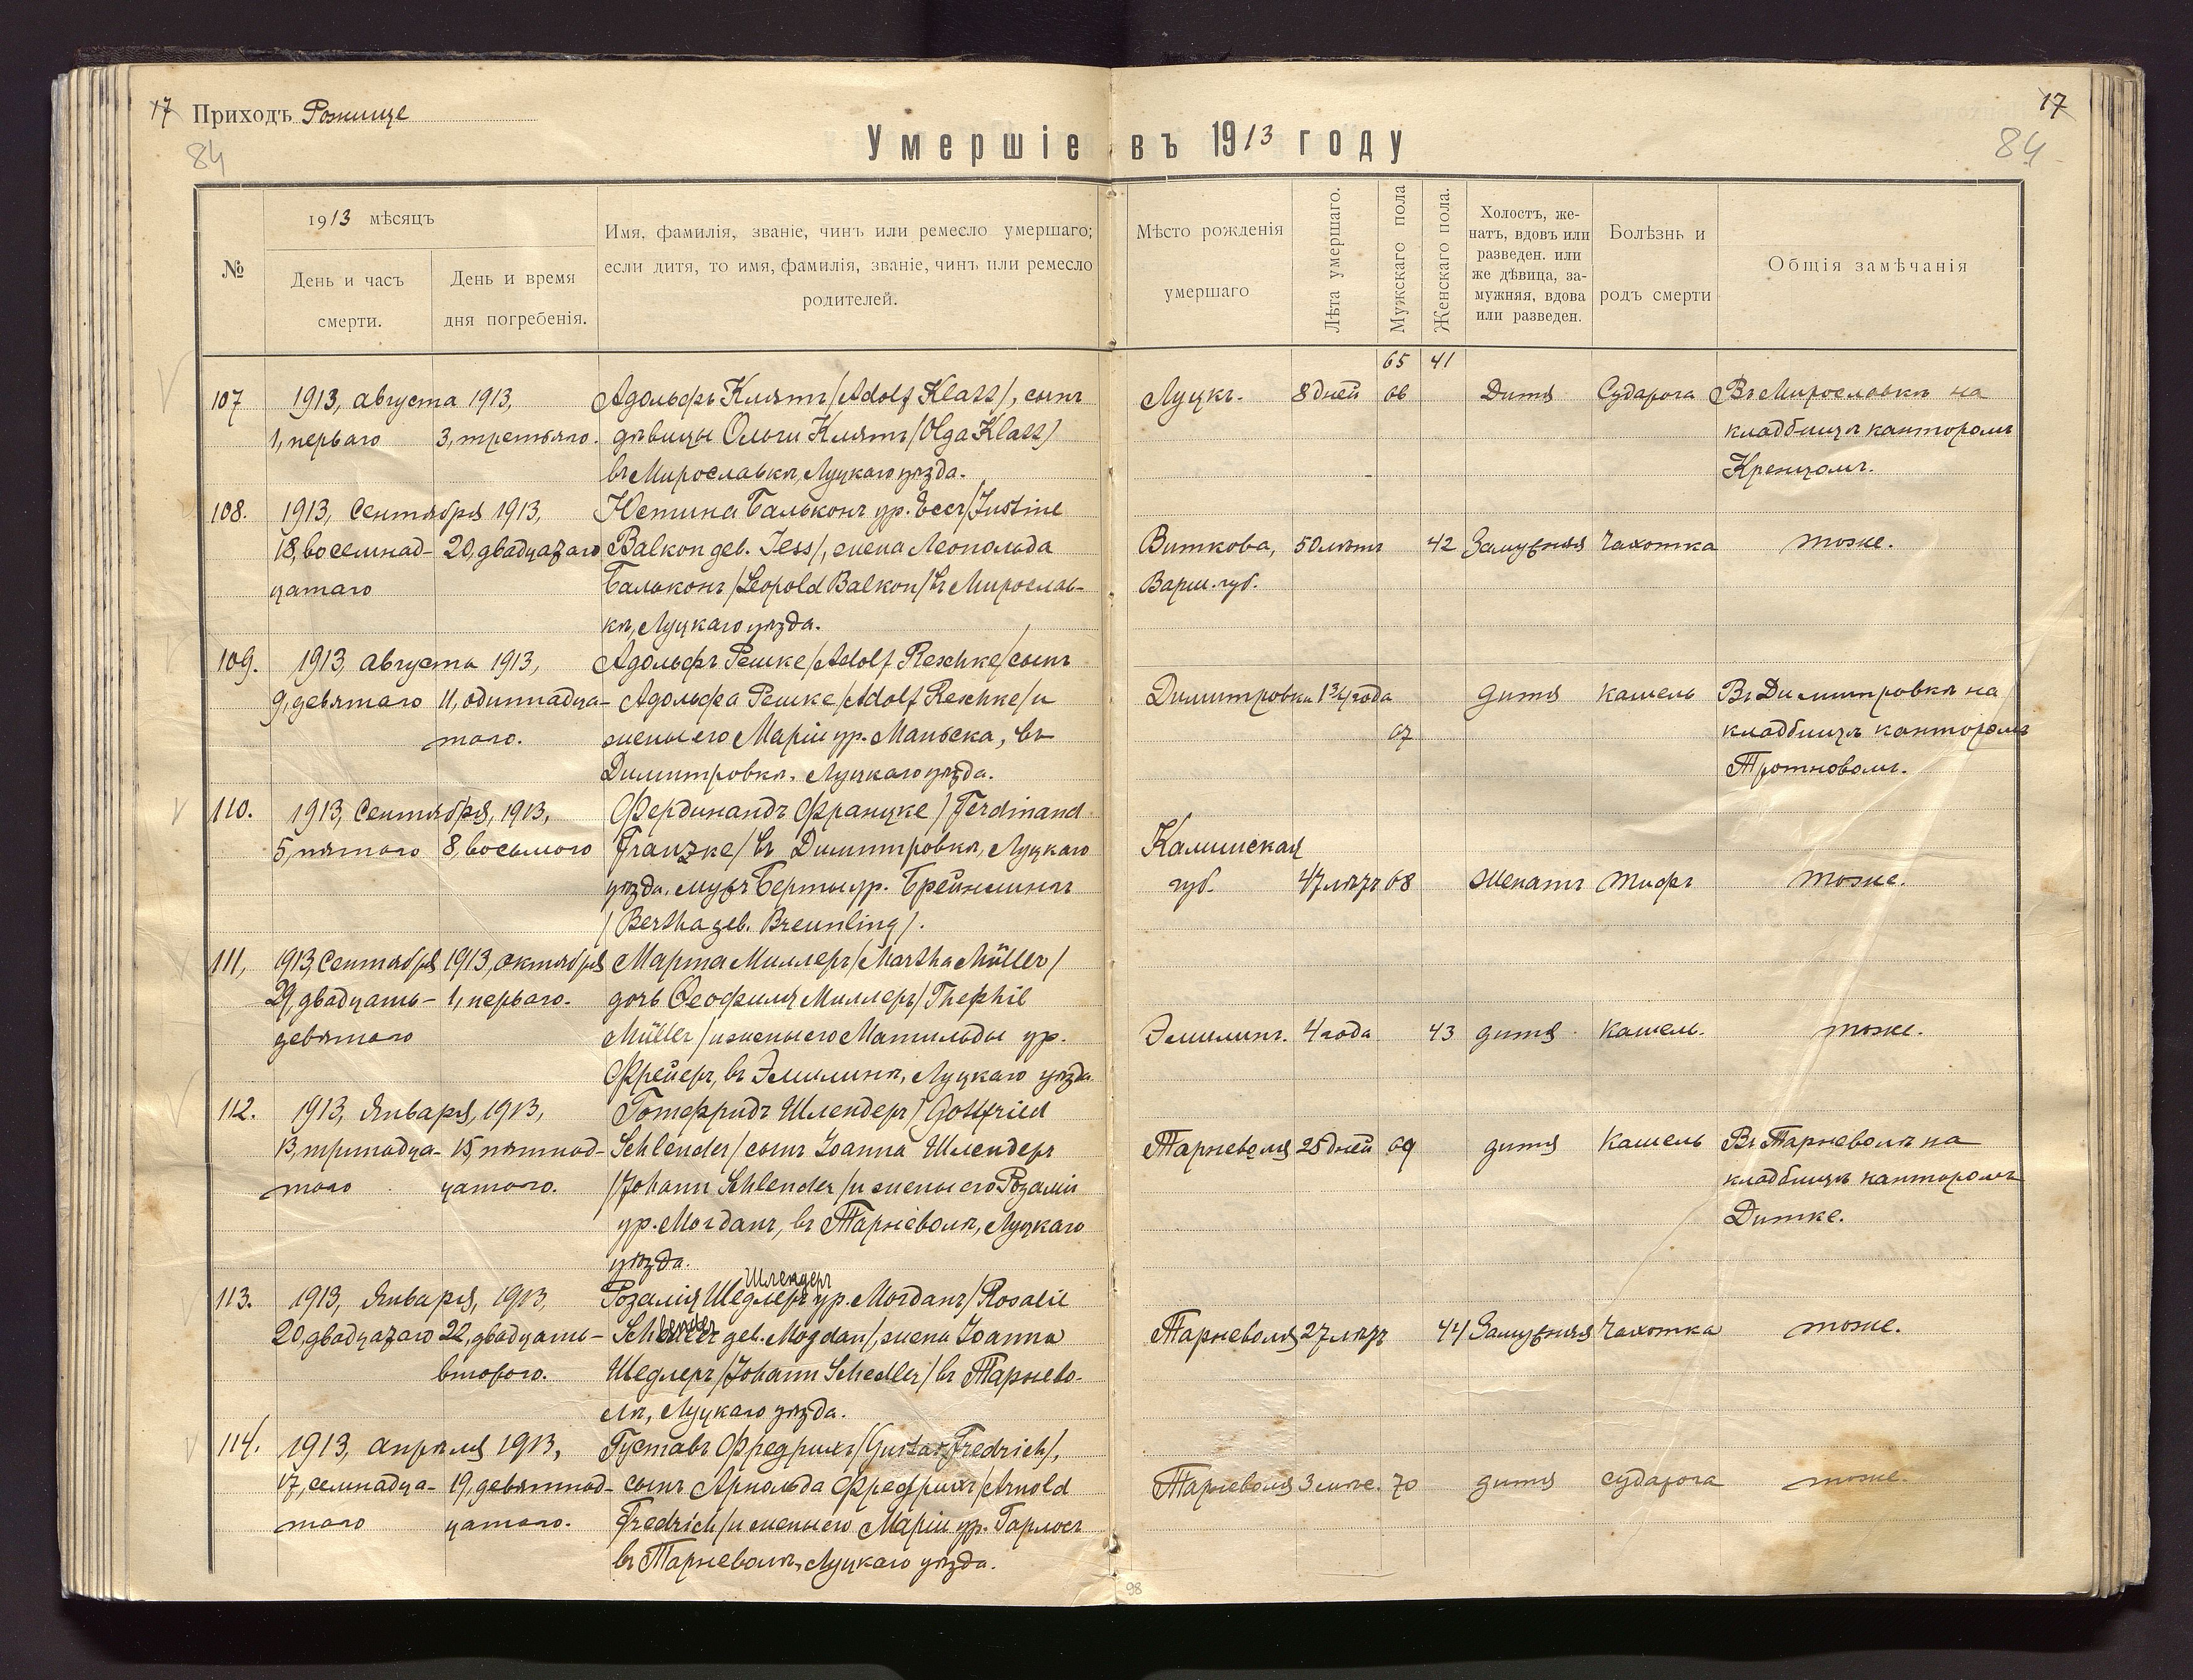 17 Приходъ Рожище 17
84 84
Умершіе въ 1913 году
№
1913 мѣсяцъ
День и часъ
смерти.
День и время
дня погребенія.
Имя, фамилія, званіе, чинъ или ремесло умершаго;
если дитя, то имя, фамилія, званіе, чинъ или ремесло
родителей.
Мѣсто рожденія
умершаго
Лѣта умершаго.
Мужскаго пола
Женскаго пола.
Холостъ, же-
натъ, вдовъ или
разведен. или
же дѣвица, за-
мужняя, вдова
или разведен.
Болѣзнь и
родъ смерти
Общія замѣчанія
65 41
107 1913, августа 1913, Адольфъ Клятъ /Adolf Klatt/, сынъ Луцкъ. 8 дней 66 Дитя Судорога Въ Мирославкѣ на
1, перваго 3, третьяго. дѣвицы Ольги Клятъ /Olga Klatt/ кладбищѣ канторомъ
въ Мирославкѣ, Луцкаго уѣзда. Кренцомъ.
108. 1913, Сентября 1913, Юстина Бальконъ ур. Ессъ /Justine
18, восемнад- 20, двадцатаго Balkon geb. Jess/, жена Леопольда Виткова, 50 лѣтъ 42 Замужняя Чахотка тоже.
цатаго Бальконъ /Leopold Balkon/ въ Мирослав- Варш. губ.
кѣ, Луцкаго уѣзда.
109. 1913, августа 1913, Адольфъ Решке /Adolf Reschke/ сынъ
9, девятаго 11, одиннадца- Адольфа Решке /Adolf Reschke/ и Димитровка 1 3/4 года дитя кашель Въ Димитровкѣ на
таго. жены его Маріи ур. Маньска, въ 67 кладбищѣ канторомъ
Димитровкѣ, Луцкаго уѣзда.
110. 1913, Сентября, 1913, Фердинандъ Францке /Ferdinand
5, пятаго 8, восьмого Franzke/ въ Димитровкѣ, Луцкаго Калишская
уѣзда, мужъ Берты ур. Брейнлингъ губ. 47 лѣтъ 68 женатъ тифъ тоже.
/Bertha geb. Breunling/.
111, 1913, Сентября 1913, октября Марта Миллеръ /Martha Müller/
29, двадцать- 1, перваго. дочь Ѳеофила Миллеръ /Thephil
девятаго Müller/ и жены его Матильды ур. Эмилинъ. 4 года 43 дитя кашель. тоже.
Фрейеръ, въ Эмилинѣ, Луцкаго уѣзда
112. 1913, Января, 1913, Готфридъ Шлендеръ /Gottfried
13, тринадца- 15, пятнад- Schlender/ сынъ Іоанна Шлендеръ Тарневоля 25 дней 69 дитя Кашель Въ Тарневолѣ на
таго цатаго. /Johann Schlender/ и жены его Розаліи кладбищѣ канторомъ
ур. Могданъ, въ Тарневолѣ, Луцкаго Дитке.
уѣзда.
Шлендеръ
113. 1913, Января, 1913, Розалія Шедлеръ ур. Могданъ /Rosalie
20, двадцатаго 22, двадцать- geb. Mogdan/, жена Іоанна Тарневоля 27 лѣтъ 44 Замужняя Чахотка тоже.
второго. Шедлеръ /Johann Schedler/ въ Тарнево-
лѣ, Луцкаго уѣзда.
114. 1913, апрѣля 1913, Густавъ Фредрихъ /Gustav Fredrich/,
17, семнадца- 19, девятнад- сынъ Арнольда Фредрихъ /Arnold Тарневоля 3 мѣс. 70 дитя судорога тоже.
таго цатаго. Fredrich/ и жены его Маріи ур. Гарлосъ
въ Тарневолѣ, Луцкаго уѣзда.
98